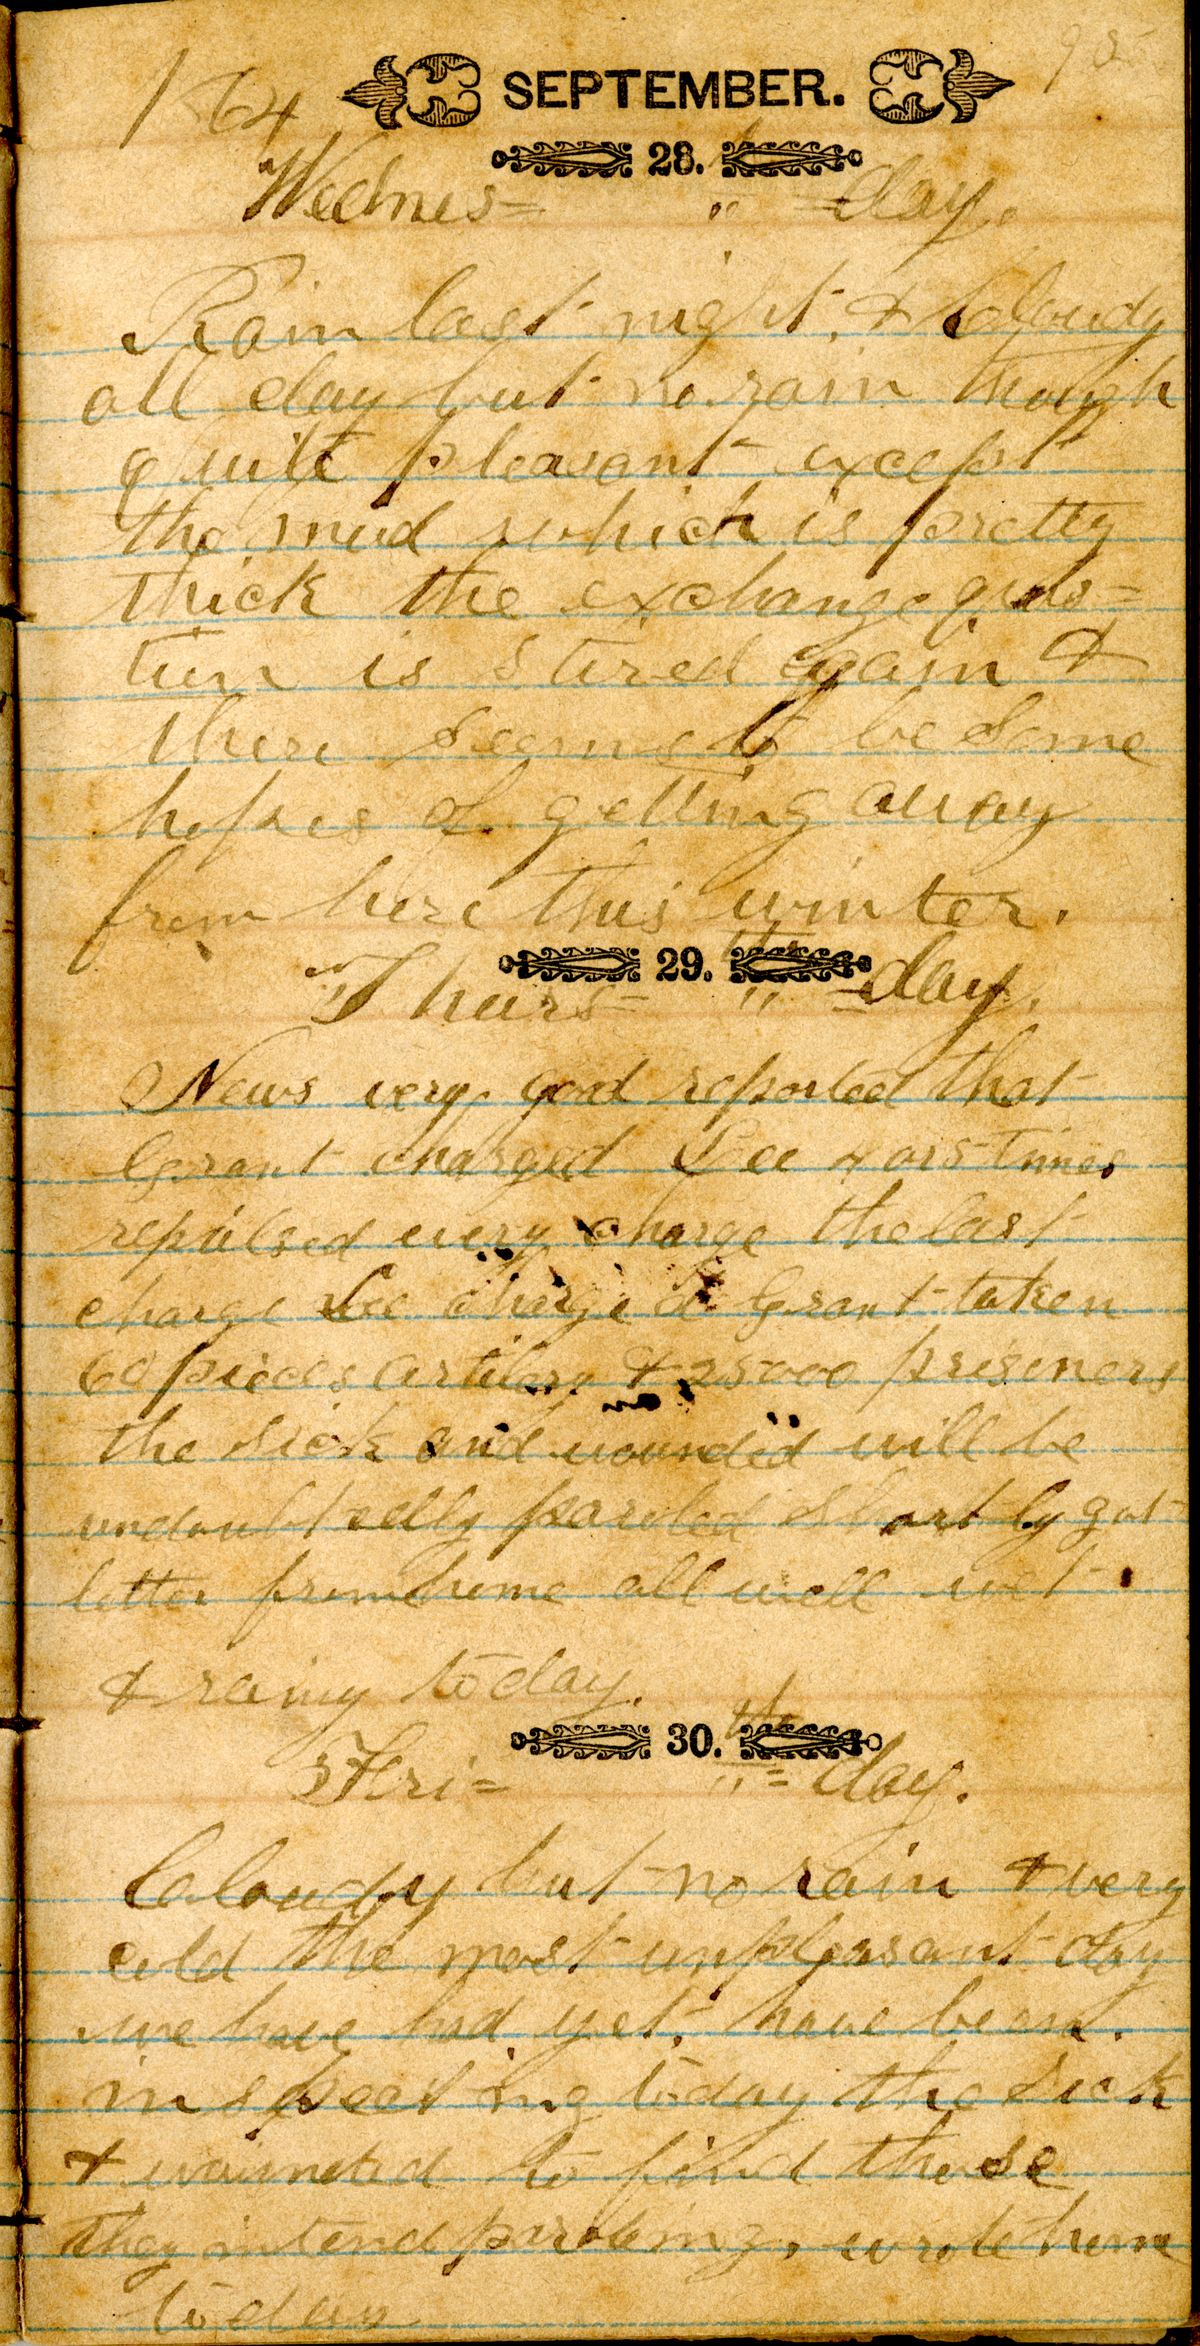 1864 SEPTEMBER. 95
28.
Wednes= " =day.
Rain last night, & cloudy
all day but no rain though
quite pleasant except
the mud which is pretty
thick the exchange ques=
tion is stired again &
there seems to be some
hopes of getting away
from here this winter.
29. th
Thurs= " =day.
News very good reported that
Grant charged Lee 4 or 5 times
repulsed every charge the last
charge Lee charged Grant taken
60 pieces artilary & 25000 prisoners
the sick and wounded will be
undoubtedly paroled shortly got
letter from home all well wet
& rainy today.
30. th
Fri= " = day.
Cloudy but no rain & very
cold the most unpleasant day
we have had yet. have been
inspecting today the sick
& wounded to find those
they intend paroleing, wrote home
today